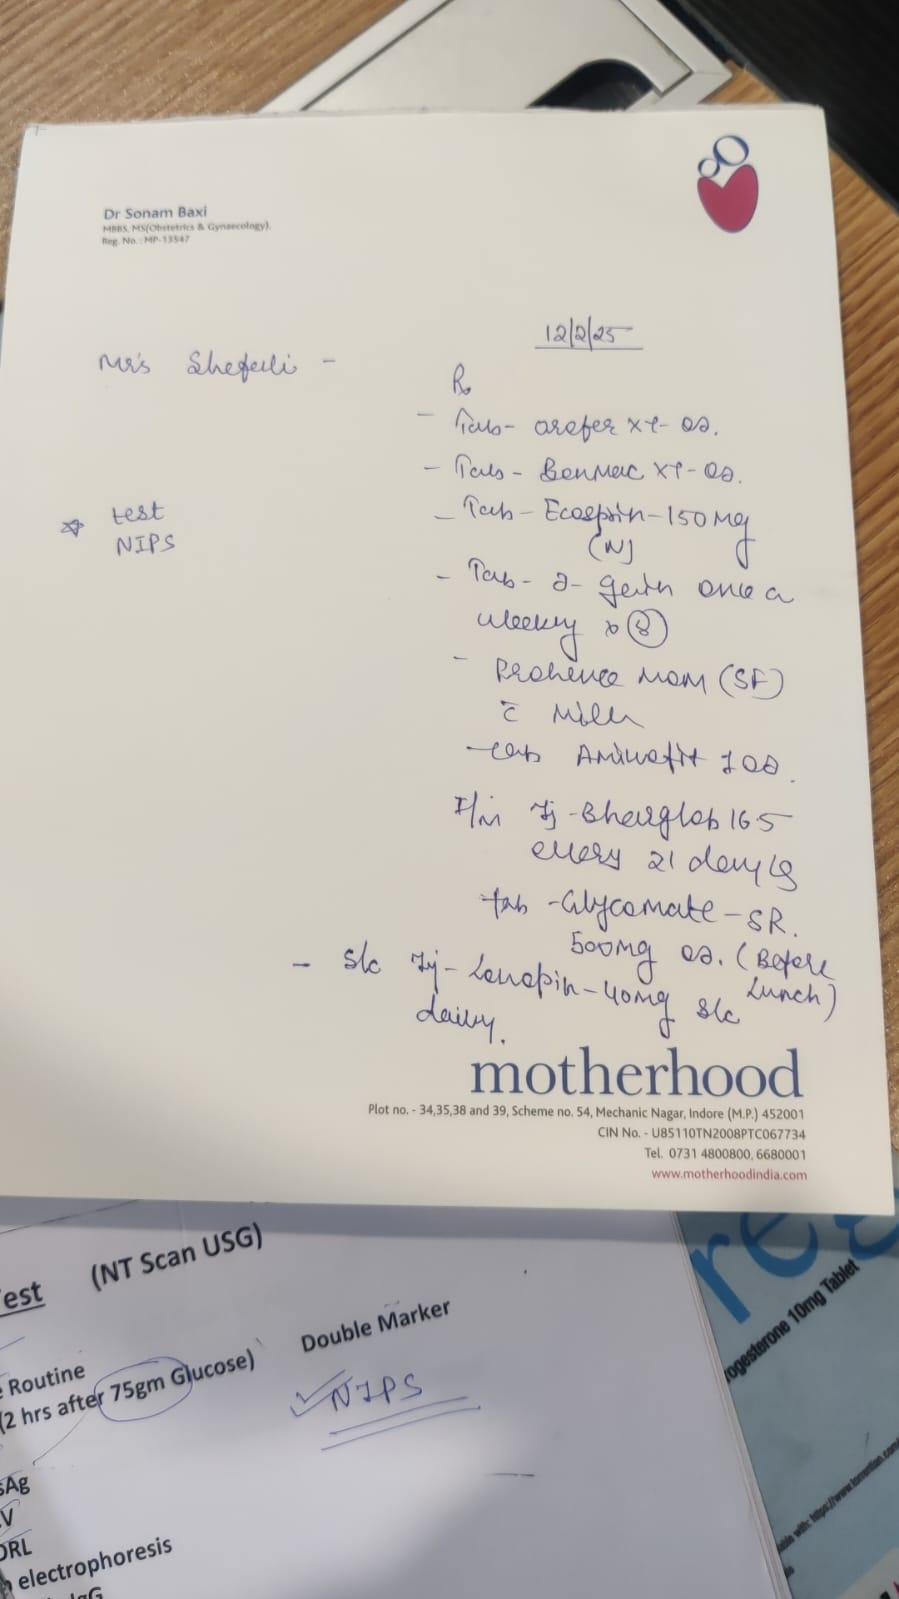 Dr Sonam Baxi
MBBS, MS(Obstetrics & Gynaecology).
Reg. No. : MP-13547
12/2/25
Mrs
Rx
- Tab- orofer XT- OD.
- Tab - XT- OD.
* test
NIPS
- Tab - Ecosprin - 150 mg
(N)
- Tab - once a
weekly x 8
- Mom (SF)
c̄ Milk
- Tab Aminofit 1 OD.
I/M Inj - 16.5
every 21 days
tab - Glycomate - SR.
500mg OD. (Before
Lunch)
- S/c Inj - Lonopin - 40mg S/c
daily.
motherhood
Plot no. - 34,35,38 and 39, Scheme no. 54, Mechanic Nagar, Indore (M.P.) 452001
CIN No. - U85110TN2008PTC067734
Tel. 0731 4800800, 6680001
www.motherhoodindia.com
est (NT Scan USG)
Routine
(2 hrs after 75gm Glucose)
Double Marker
NIPS
sAg
V
DRL
electrophoresis
IgG
rogesterone 10mg Tablet